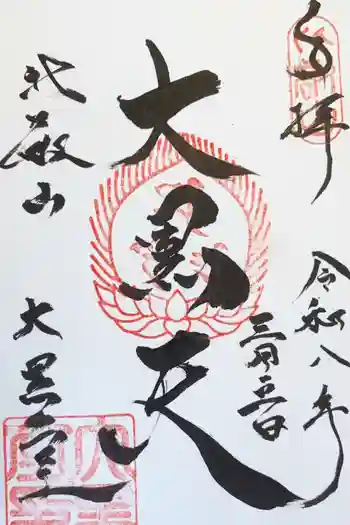 奉拝
令和八年
三月三日
大黒天
比叡山
大黒堂